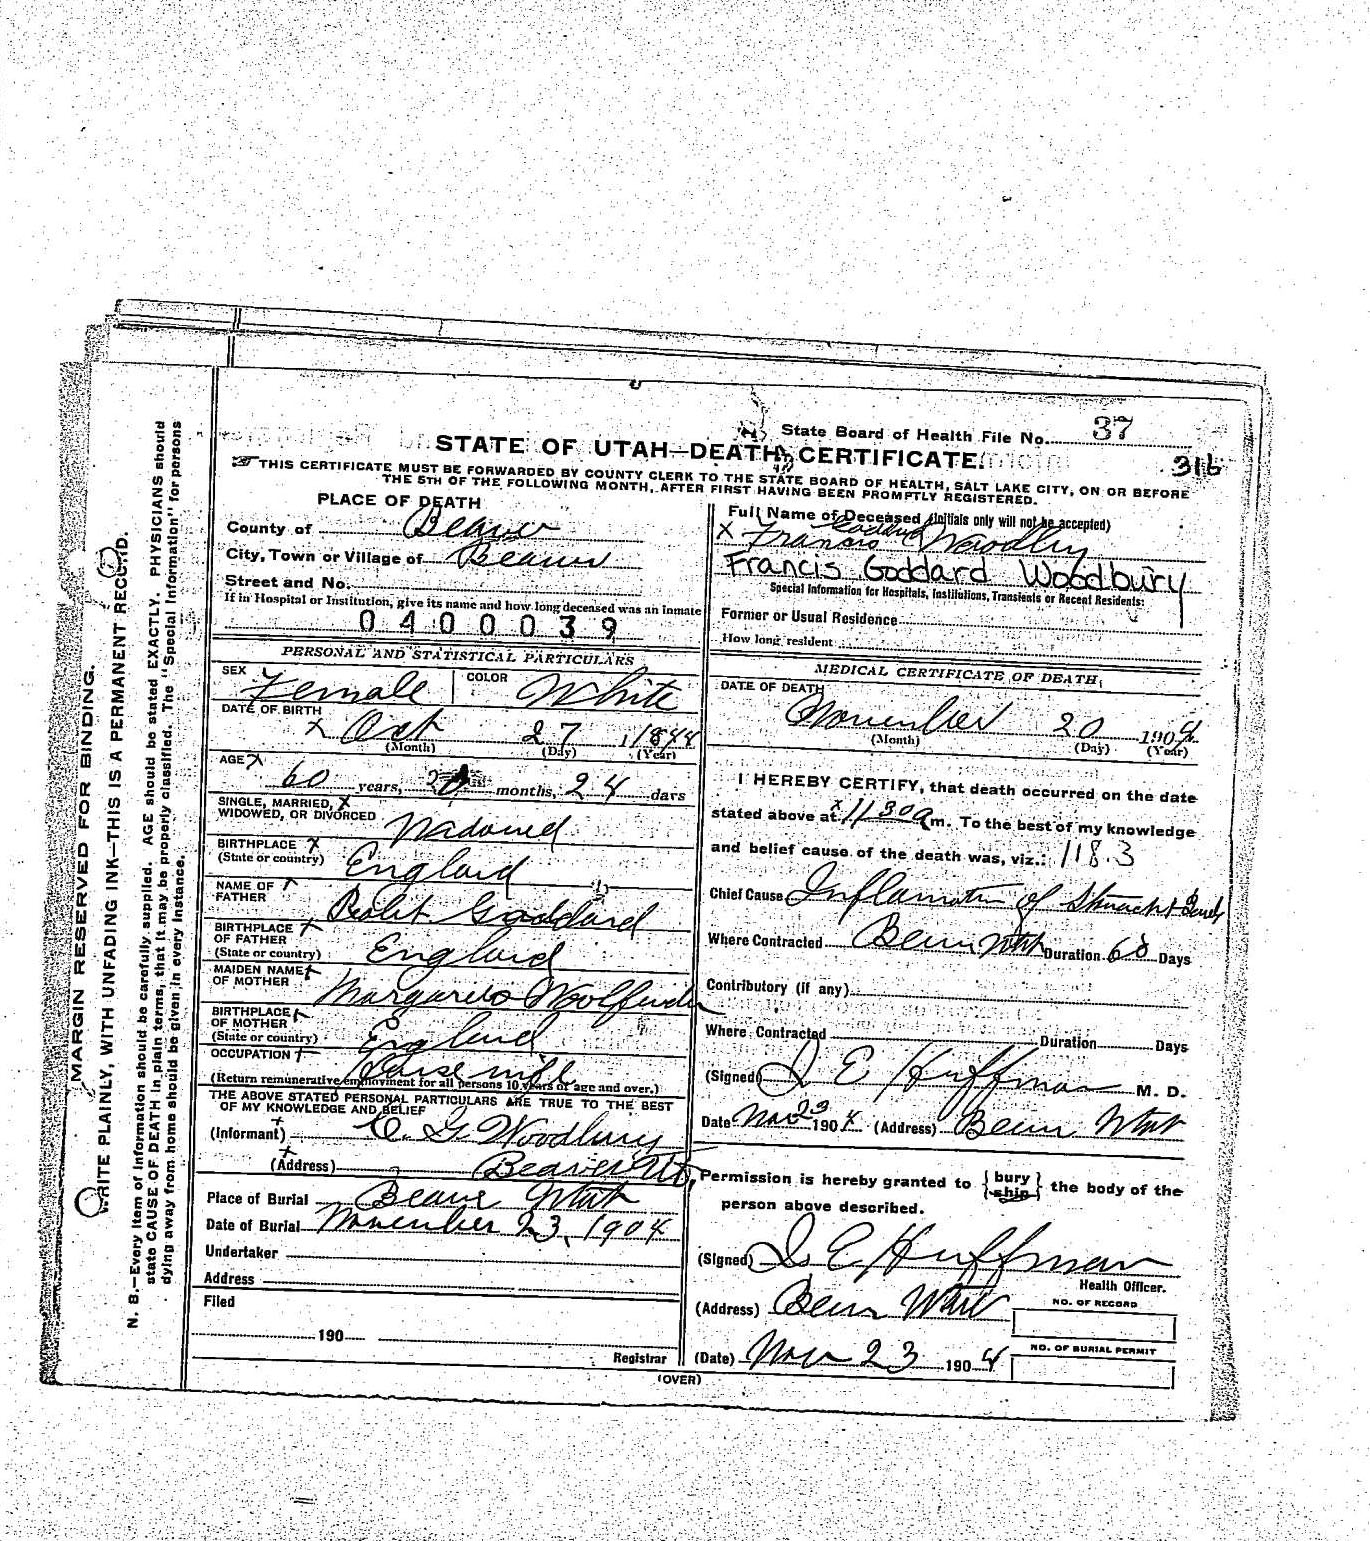 State Board of Health File No. 37
STATE OF UTAH—DEATH CERTIFICATE.
316
THIS CERTIFICATE MUST BE FORWARDED BY COUNTY CLERK TO THE STATE BOARD OF HEALTH, SALT LAKE CITY, ON OR BEFORE
THE 5TH OF THE FOLLOWING MONTH, AFTER FIRST HAVING BEEN PROMPTLY REGISTERED.
PLACE OF DEATH
County of Beaver
City, Town or Village of Beaver
Street and No.
If in Hospital or Institution, give its name and how long deceased was an inmate
0400039
PERSONAL AND STATISTICAL PARTICULARS
SEX Female COLOR White
DATE OF BIRTH
x Oct 27 1844
(Month) (Day) (Year)
AGE x 60 years, months, 24 days
SINGLE, MARRIED, x
WIDOWED, OR DIVORCED Widowed
BIRTHPLACE x
(State or country) England
NAME OF
FATHER Goddard
BIRTHPLACE x
OF FATHER
(State or country) England
MAIDEN NAME x
OF MOTHER
BIRTHPLACE x
OF MOTHER
(State or country) England
OCCUPATION x Housewife
(Return remunerative employment for all persons 10 years of age and over.)
THE ABOVE STATED PERSONAL PARTICULARS ARE TRUE TO THE BEST
OF MY KNOWLEDGE AND BELIEF
(Informant) G. Woodbury
(Address) Beaver Ut.
Place of Burial Beaver Utah
Date of Burial November 23, 1904
Undertaker
Address
Filed
190
Registrar
Full Name of Deceased (Initials only will not be accepted)
x Francis Goddard
Francis Goddard Woodbury
Special Information for Hospitals, Institutions, Transients or Recent Residents:
Former or Usual Residence
How long resident
MEDICAL CERTIFICATE OF DEATH
DATE OF DEATH
November 20 1904
(Month) (Day) (Year)
I HEREBY CERTIFY, that death occurred on the date
stated above at x 11 30 a m. To the best of my knowledge
and belief cause of the death was, viz.: 118.3
Chief Cause Inflamation of Stomach & Bowels
Where Contracted Beaver Utah Duration 60 Days
Contributory (if any)
Where Contracted Duration Days
(Signed) E Huffman M. D.
Date Nov 23 1904 (Address) Beaver Utah
Permission is hereby granted to {bury ship} the body of the
person above described.
(Signed) E Huffman
Health Officer.
(Address) Beaver Utah
NO. OF RECORD
NO. OF BURIAL PERMIT
(Date) Nov 23 1904
(OVER)
MARGIN RESERVED FOR BINDING.
WRITE PLAINLY, WITH UNFADING INK—THIS IS A PERMANENT RECORD.
N. B.—Every item of information should be carefully supplied. AGE should be stated EXACTLY. PHYSICIANS should
state CAUSE OF DEATH in plain terms, that it may be properly classified. The "Special Information" for persons
dying away from home should be given in every instance.